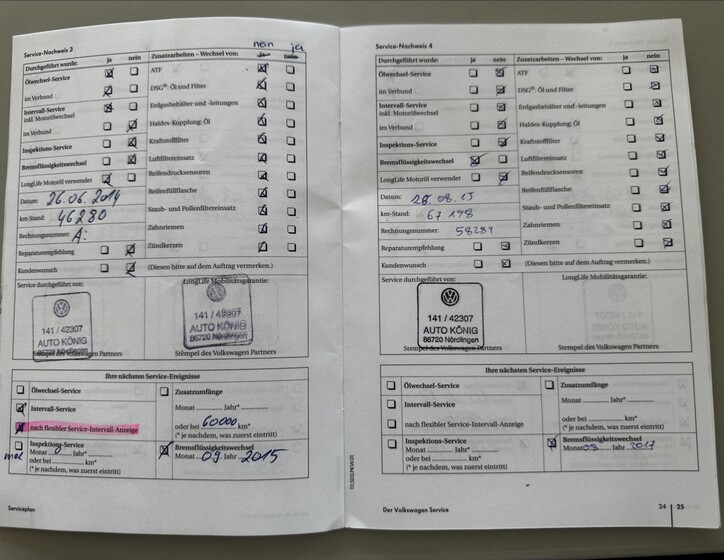 Service-Nachweis 3
nein ja
Durchgeführt wurde: ja nein
Zusatzarbeiten – Wechsel von:
Ölwechsel-Service
ATF
im Verbund
DSG®: Öl und Filter
Intervall-Service
inkl. Motorölwechsel
Erdgasbehälter und -leitungen
im Verbund
Haldex-Kupplung: Öl
Inspektions-Service
Kraftstofffilter
Bremsflüssigkeitswechsel
Luftfiltereinsatz
LongLife Motoröl verwendet
Reifendrucksensoren
Datum: 26.06.2014
Reifenfüllflasche
km-Stand: 46280
Staub- und Pollenfiltereinsatz
Rechnungsnummer: A:
Zahnriemen
Reparaturempfehlung
Zündkerzen
Kundenwunsch
(Diesen bitte auf dem Auftrag vermerken.)
Service durchgeführt von:
LongLife Mobilitätsgarantie:
141 / 42307
AUTO KÖNIG
86720 Nördlingen
Stempel des Volkswagen Partners
141 / 42307
AUTO KÖNIG
86720 Nördlingen
Stempel des Volkswagen Partners
Ihre nächsten Service-Ereignisse
Ölwechsel-Service
Zusatzumfänge
Intervall-Service
Monat Jahr*
nach flexibler Service-Intervall-Anzeige
oder bei 60000 km*
(* je nachdem, was zuerst eintritt)
Inspektions-Service
Monat Jahr*
oder bei km*
(* je nachdem, was zuerst eintritt)
Bremsflüssigkeitswechsel
Monat 09. Jahr 2015
Serviceplan
Service-Nachweis 4
Durchgeführt wurde: ja nein
Zusatzarbeiten – Wechsel von: ja nein
Ölwechsel-Service
ATF
im Verbund
DSG®: Öl und Filter
Intervall-Service
inkl. Motorölwechsel
Erdgasbehälter und -leitungen
im Verbund
Haldex-Kupplung: Öl
Inspektions-Service
Kraftstofffilter
Bremsflüssigkeitswechsel
Luftfiltereinsatz
LongLife Motoröl verwendet
Reifendrucksensoren
Datum: 28.08.15
Reifenfüllflasche
km-Stand: 67198
Staub- und Pollenfiltereinsatz
Rechnungsnummer: 58284
Zahnriemen
Reparaturempfehlung
Zündkerzen
Kundenwunsch
(Diesen bitte auf dem Auftrag vermerken.)
Service durchgeführt von:
LongLife Mobilitätsgarantie:
141 / 42307
AUTO KÖNIG
86720 Nördlingen
Stempel des Volkswagen Partners
Stempel des Volkswagen Partners
Ihre nächsten Service-Ereignisse
Ölwechsel-Service
Zusatzumfänge
Intervall-Service
Monat Jahr*
nach flexibler Service-Intervall-Anzeige
oder bei km*
(* je nachdem, was zuerst eintritt)
Inspektions-Service
Monat Jahr*
oder bei km*
(* je nachdem, was zuerst eintritt)
Bremsflüssigkeitswechsel
Monat 08 Jahr 2017
Der Volkswagen Service
24 | 25